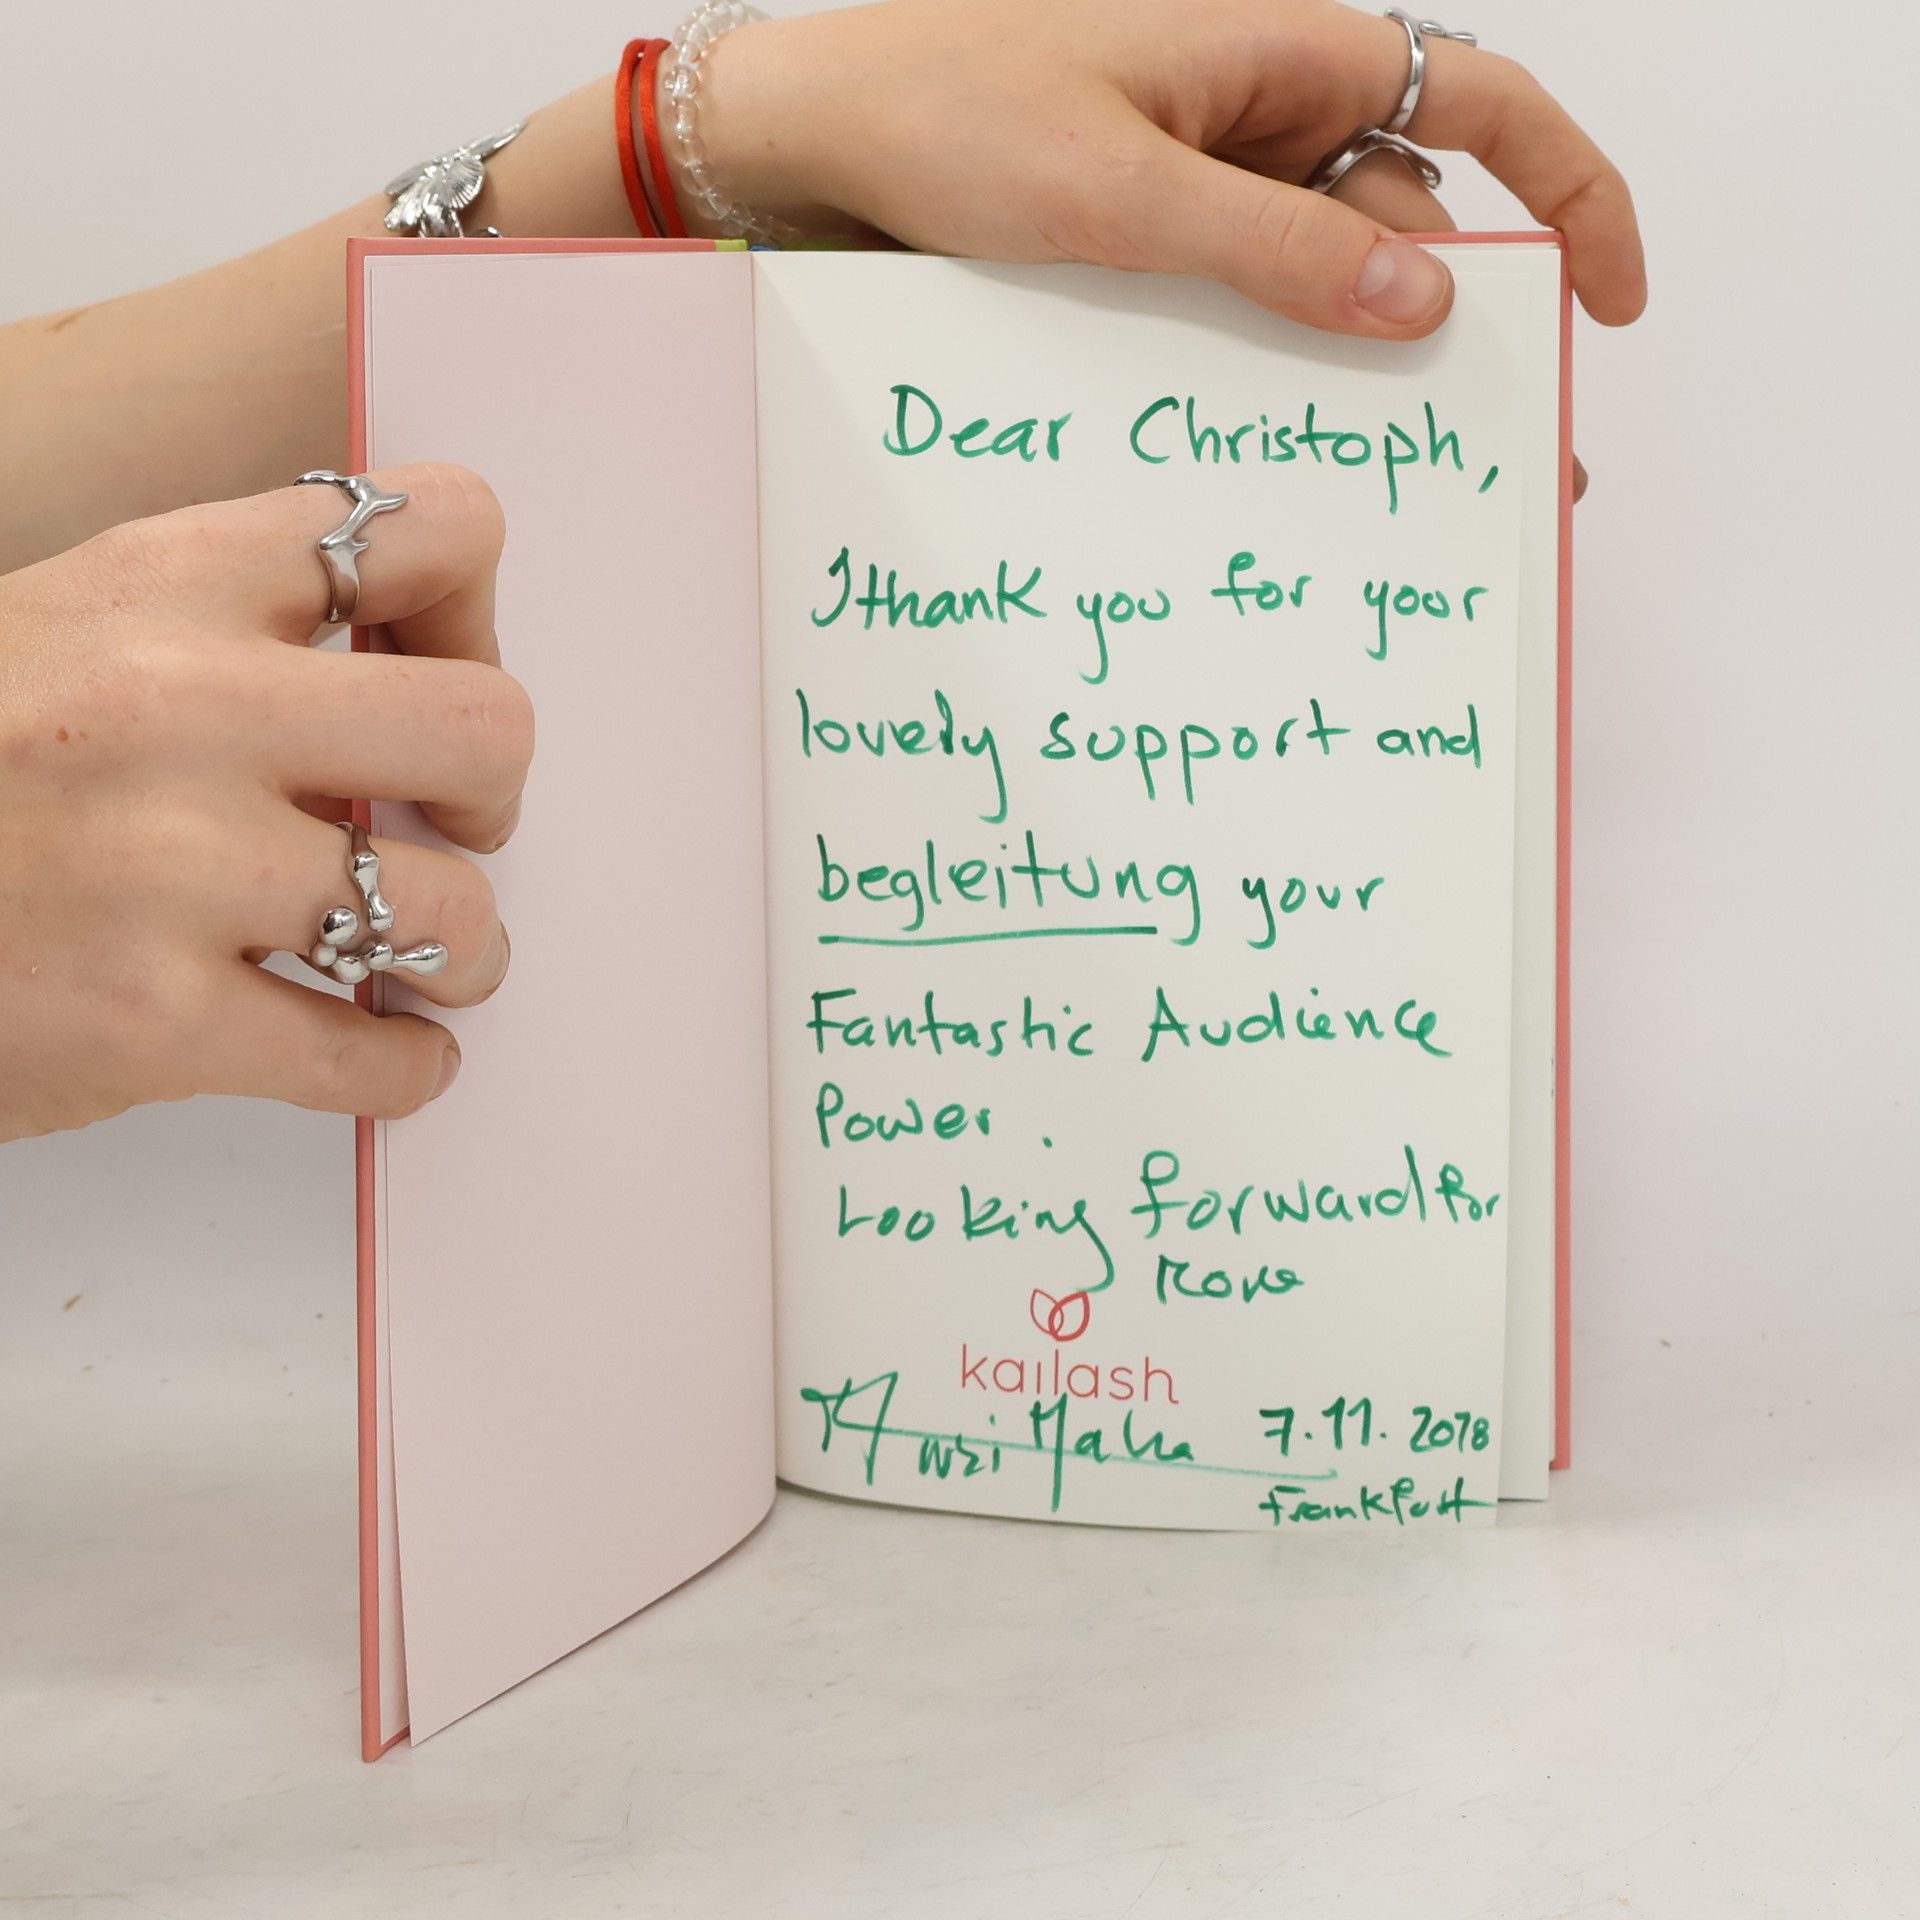 Dear Christoph,
I thank you for your
lovely support and
begleitung your
Fantastic Audience
Power.
Looking forward for
more
kailash
7.11.2018
Frankfurt